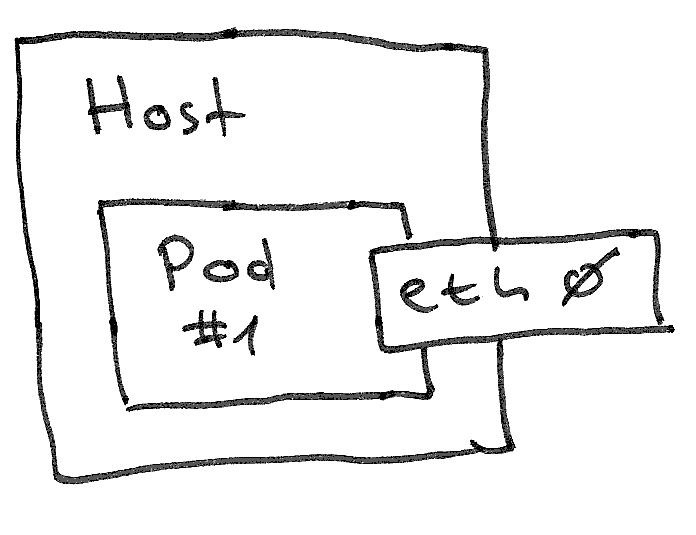 Host
Pod
#1
eth 0